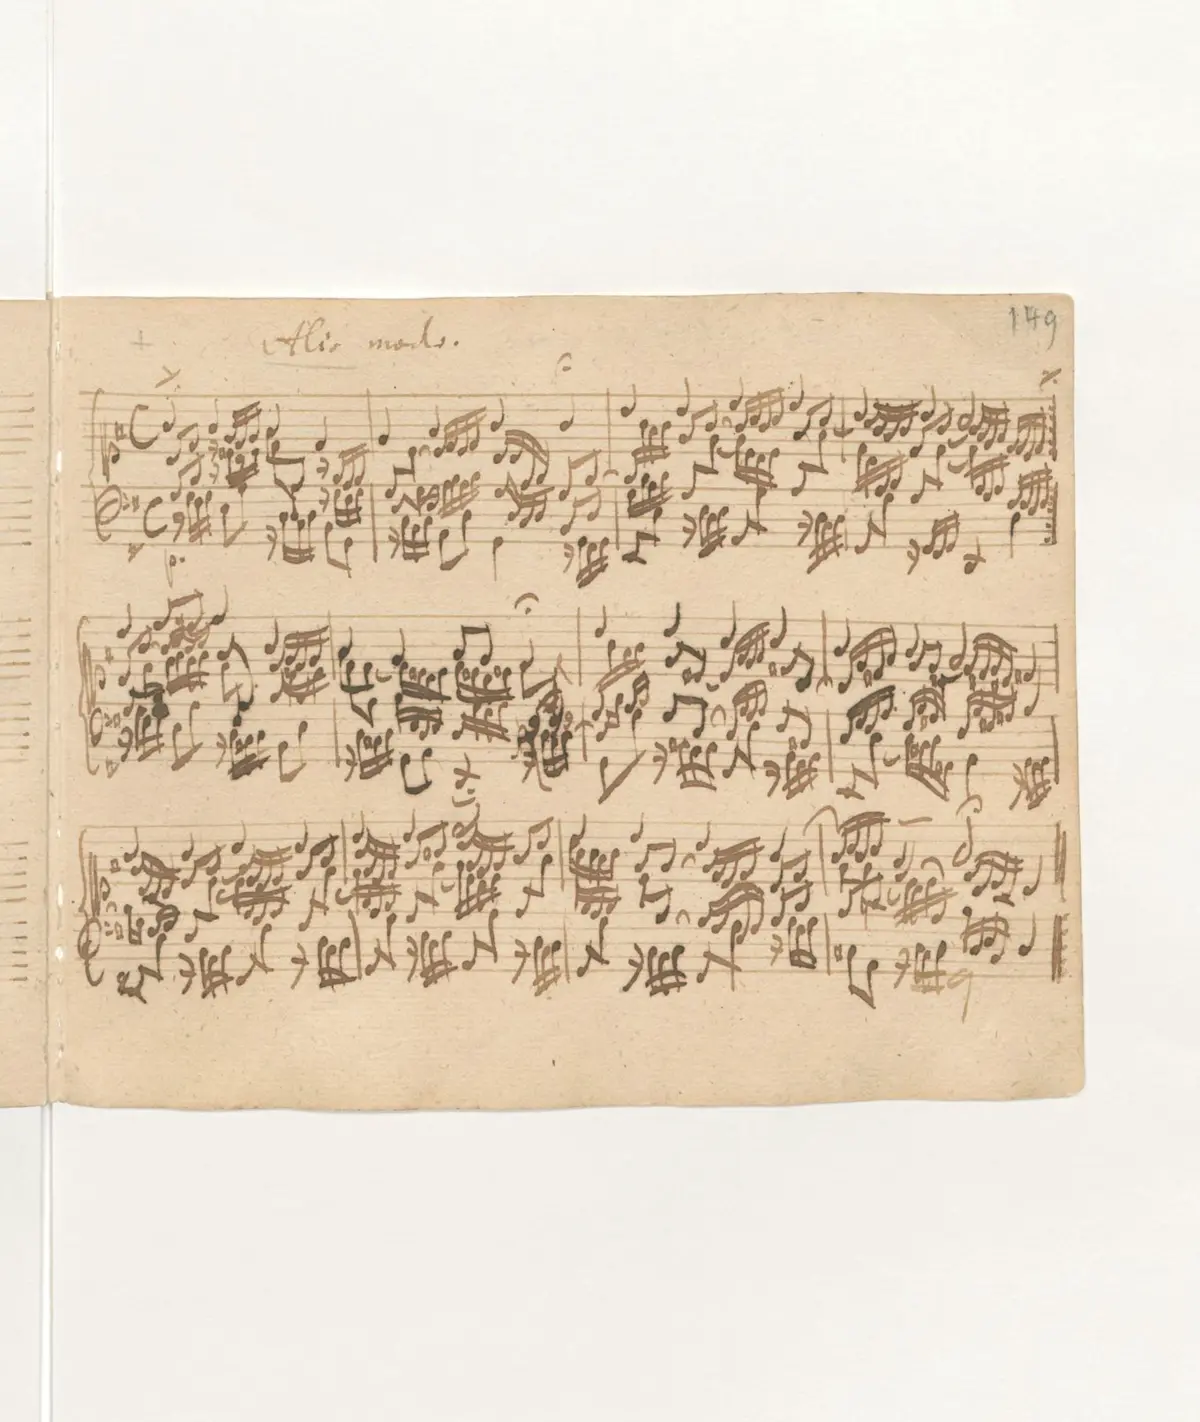 149
Alio modo.